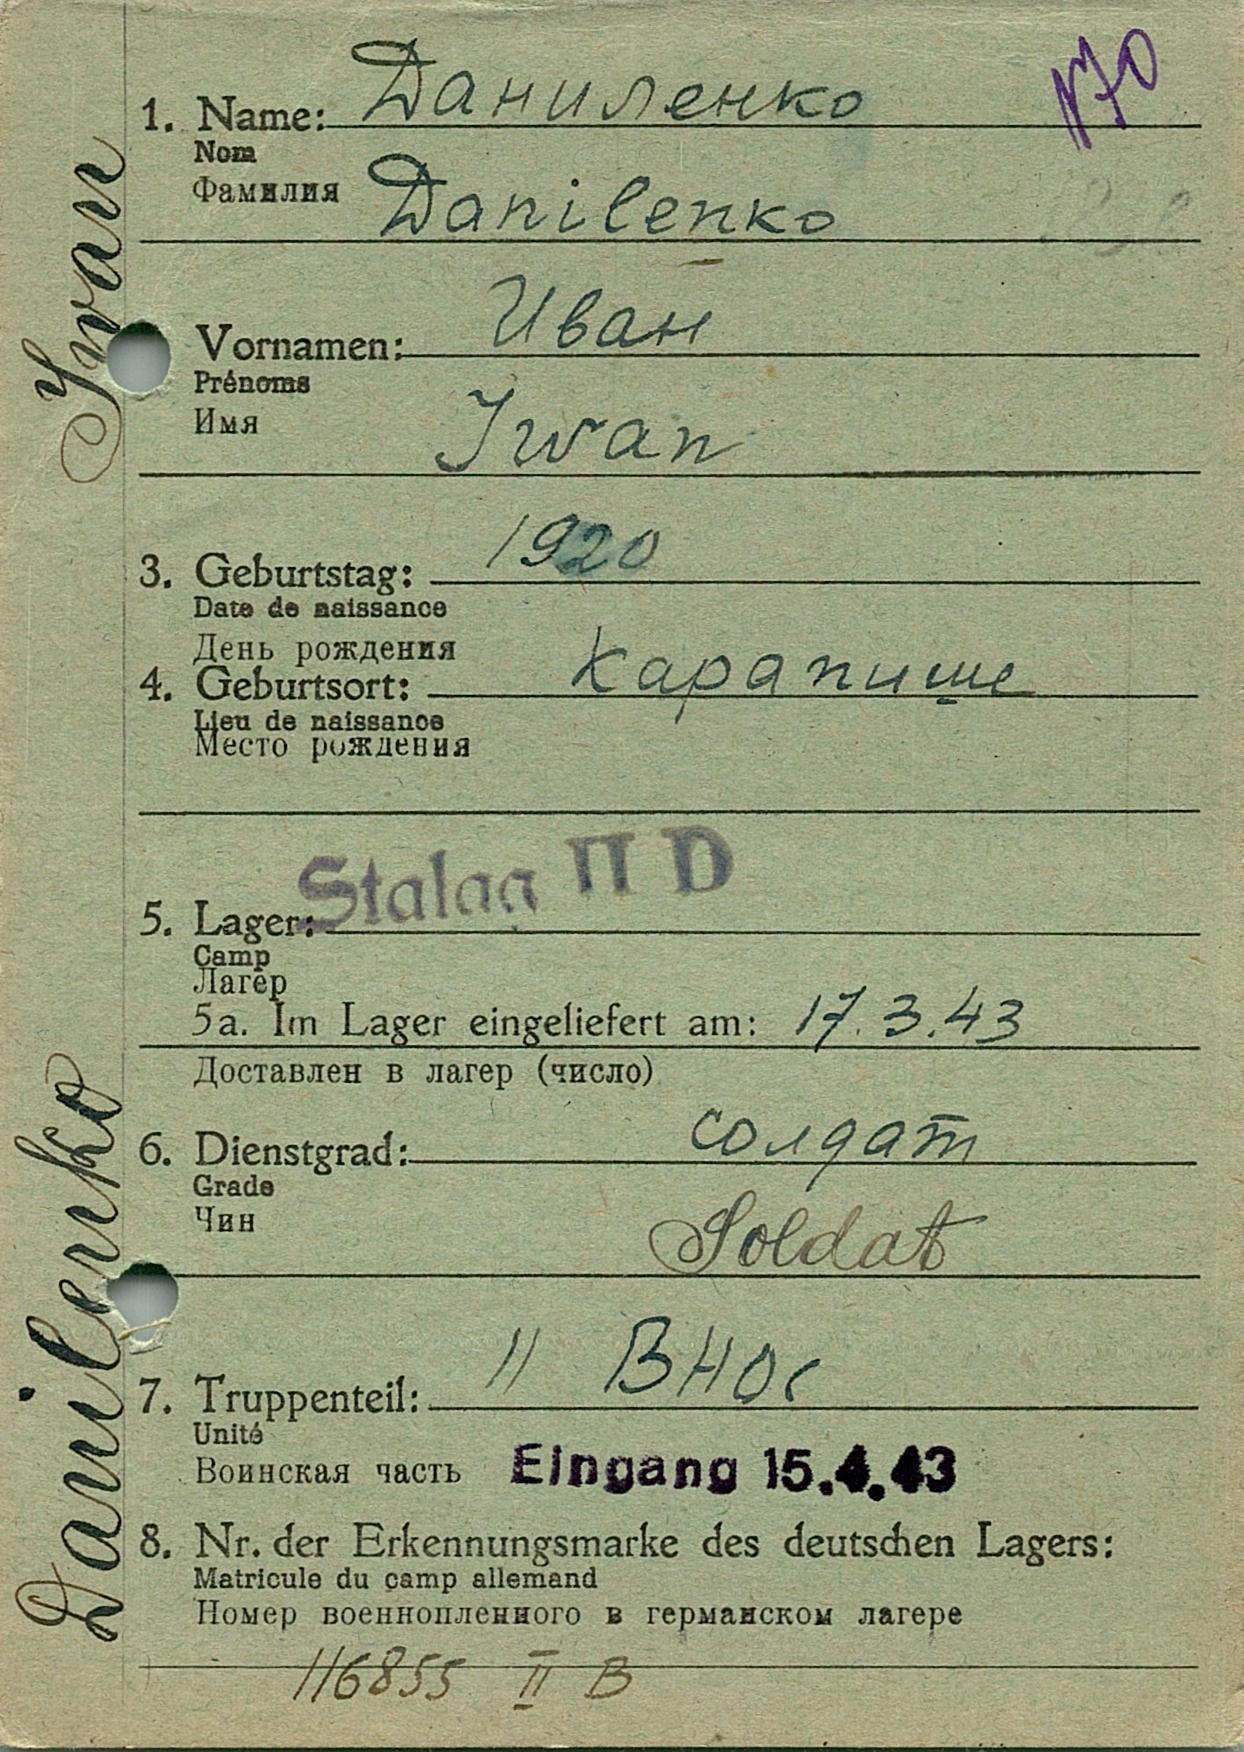 Даниленко
170
1. Name:
Nom
Фамилия
Danilenko
Иван
Vornamen:
Prénoms
Имя
Iwan
1920
3. Geburtstag:
Date de naissance
День рождения
Карапише
4. Geburtsort:
Lieu de naissance
Место рождения
Stalag II D
5. Lager:
Camp
Лагер
5a. Im Lager eingeliefert am: 17.3.43
Доставлен в лагер (число)
солдат
6. Dienstgrad:
Grade
Чин
Soldat
11 ВНОС
7. Truppenteil:
Unité
Воинская часть
Eingang 15.4.43
8. Nr. der Erkennungsmarke des deutschen Lagers:
Matricule du camp allemand
Номер военнопленного в германском лагере
116855 II B
Danilenko Iwan